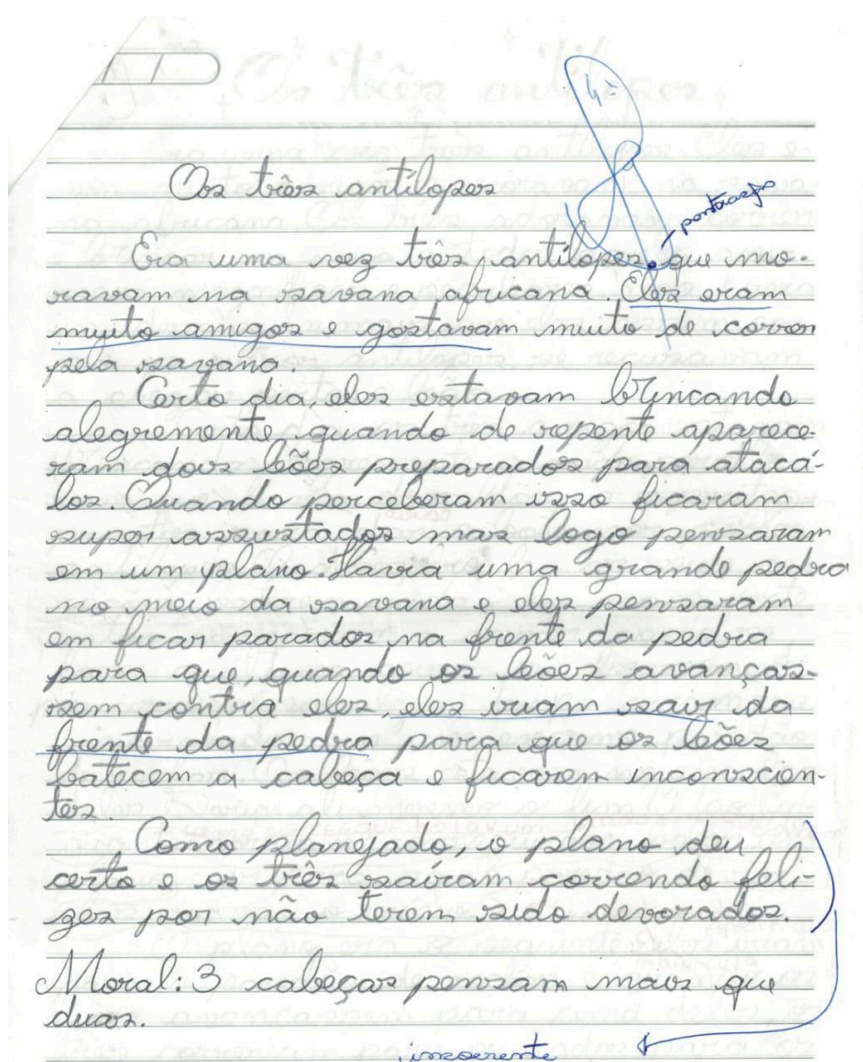 4º
Os três antílopes
pontuação
Era uma vez três antílopes. que mo-
ravam na savana africana. Eles eram
muito amigos e gostavam muito de correr
pela savana.
Certo dia eles estavam brincando
alegremente, quando de repente aparece-
ram dois leões preparados para atacá-
los. Quando perceberam isso ficaram
super assustados mas logo pensaram
em um plano. Havia uma grande pedra
no meio da savana e eles pensaram
em ficar parados na frente da pedra
para que, quando os leões avanças-
sem contra eles, eles iriam sair da
frente da pedra para que os leões
batecem a cabeça e ficarem inconscien-
tes.
Como planejado, o plano deu
certo e os três saíram correndo feli-
zes por não terem sido devorados.
Moral: 3 cabeças pensam mais que
duas.
incoerente